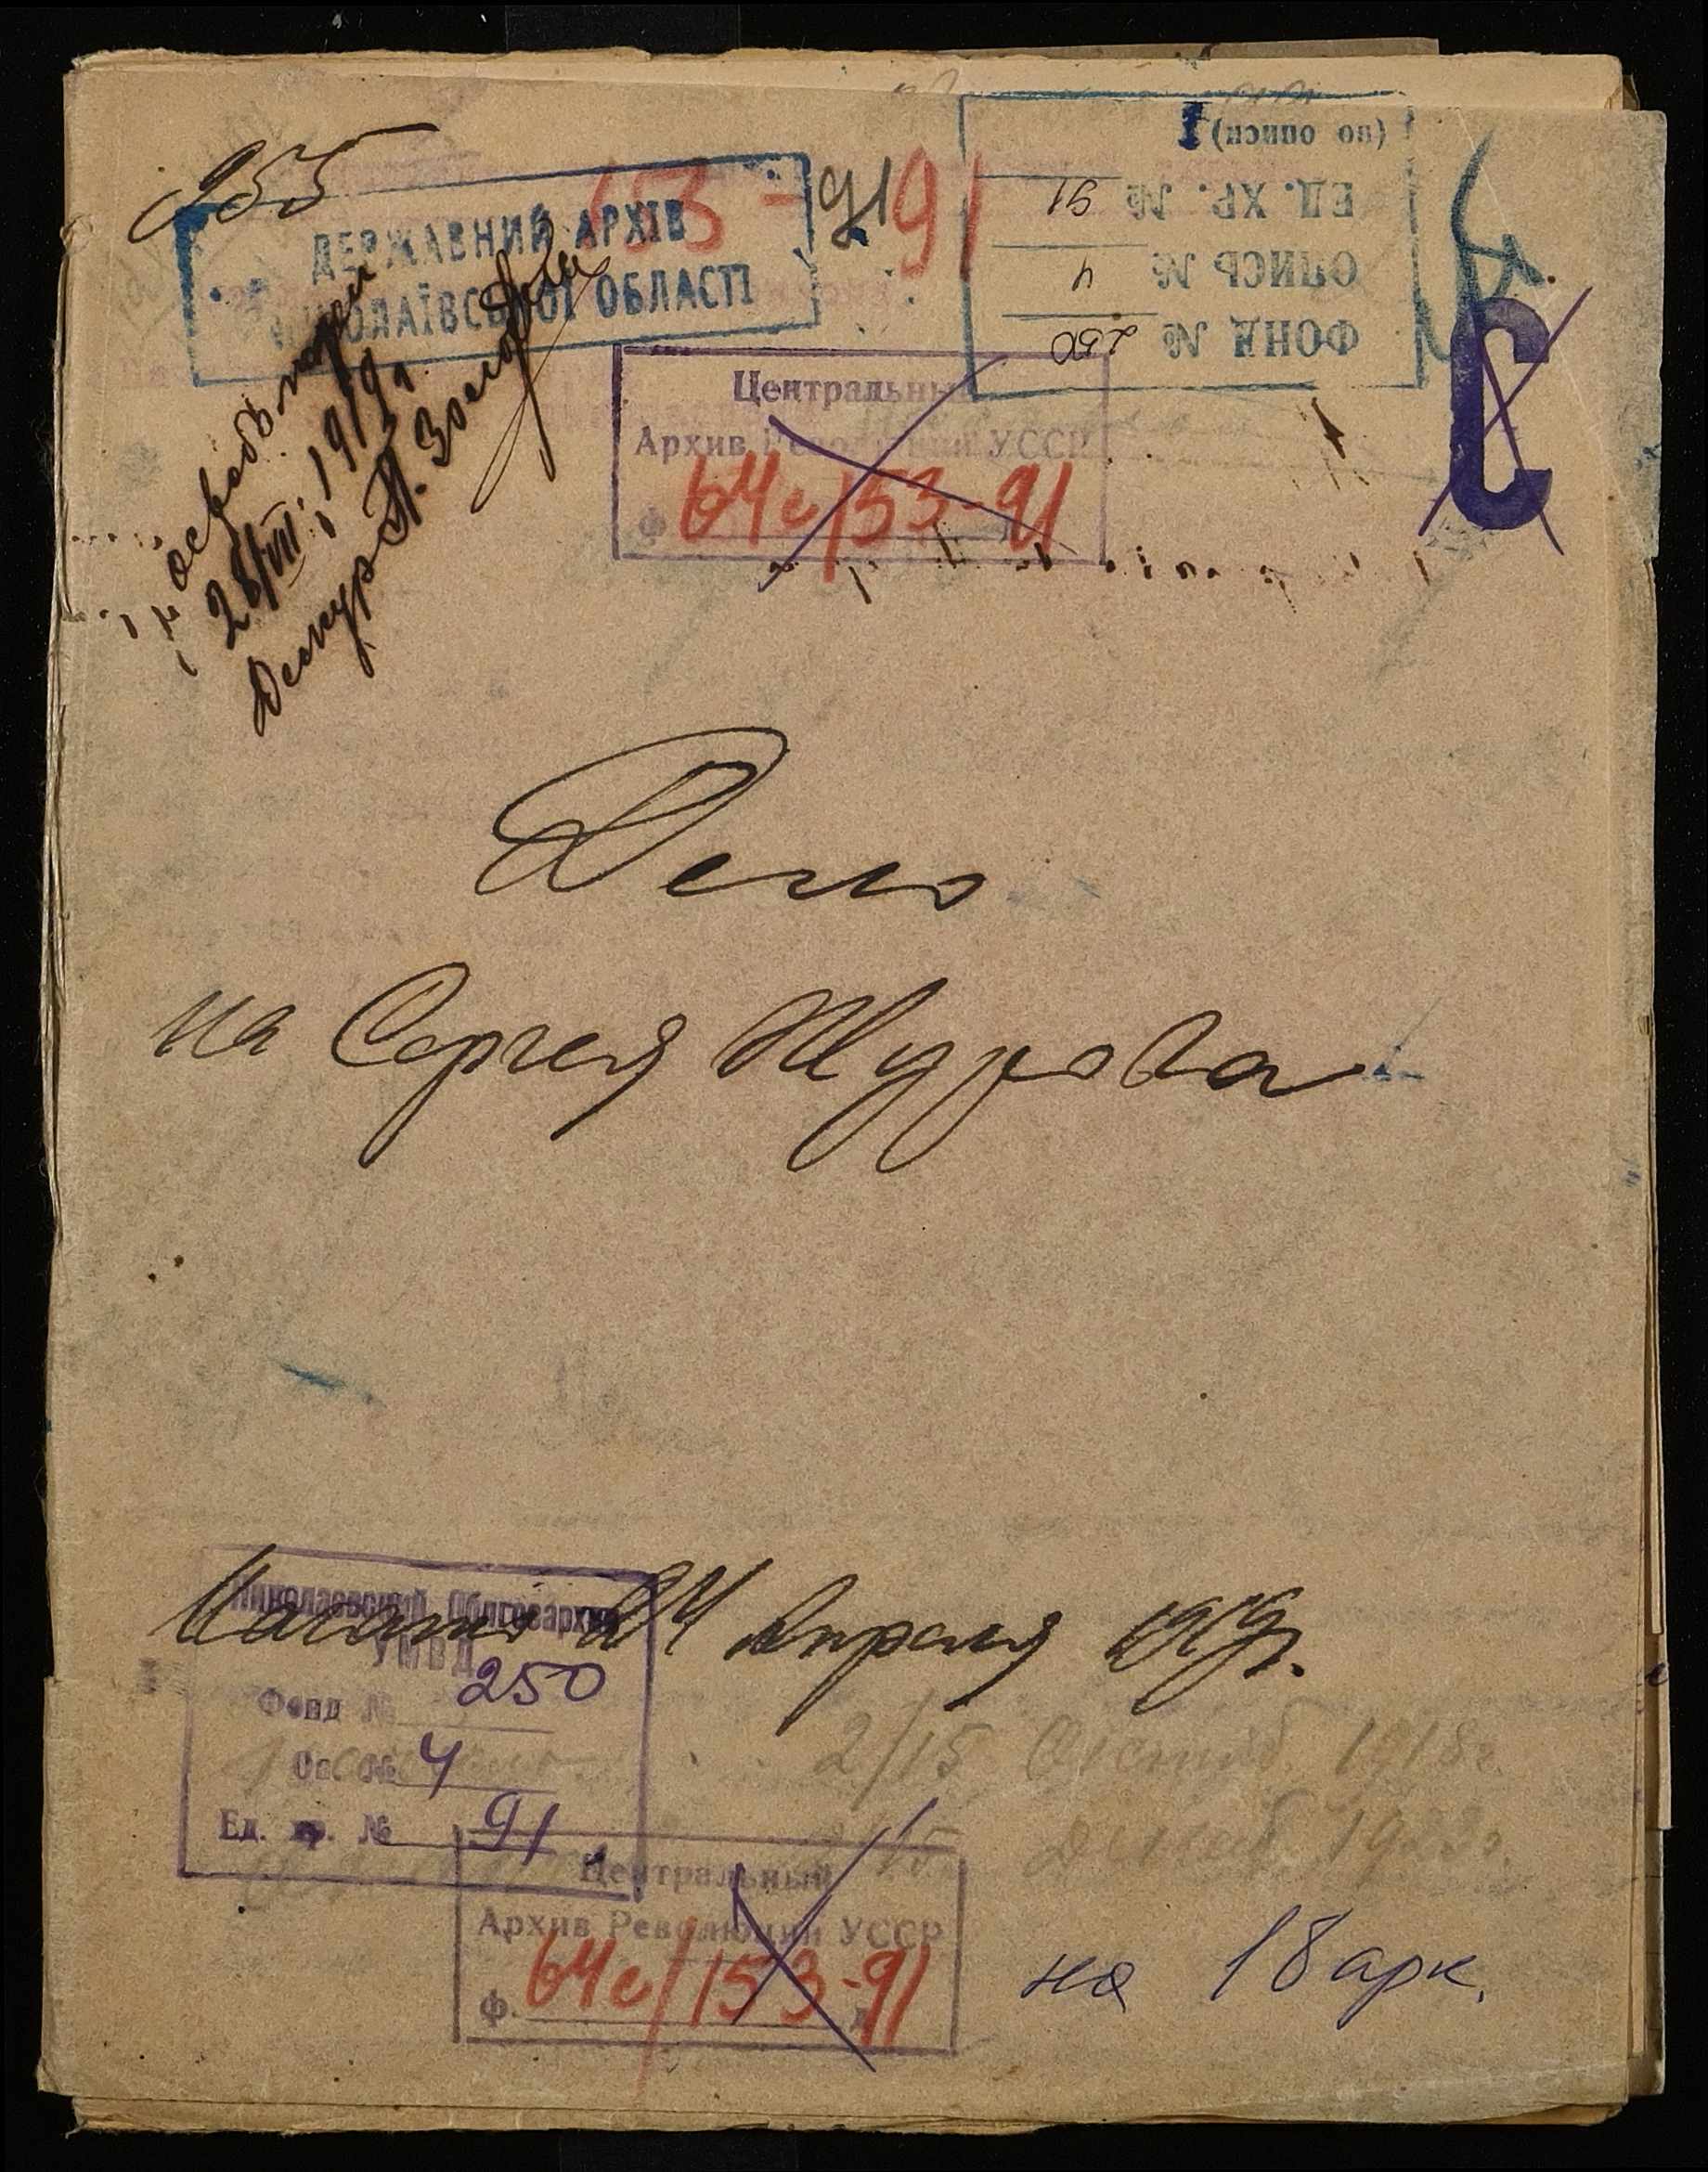 955
ДЕРЖАВНИЙ АРХІВ
МИКОЛАЇВСЬКОЇ ОБЛАСТІ
153-91
91
(по описи) 1
ЕД. ХР. № 91
ОПИСЬ № 4
ФОНД № 250
С
Центральный
Архив Революции УССР
Ф 64с/153-91
28/VII 1919 г.
Дело
на Сергея Журова
Начато 24 Апреля 1919 г.
Николаевский Облгосархив
УМВД
Фонд № 250
Оп. № 4
Ед. хр. № 91
2/15 1918 г.
15 1922 г.
Центральный
Архив Революции УССР
ф. 64с/153-91
на 18 арк.